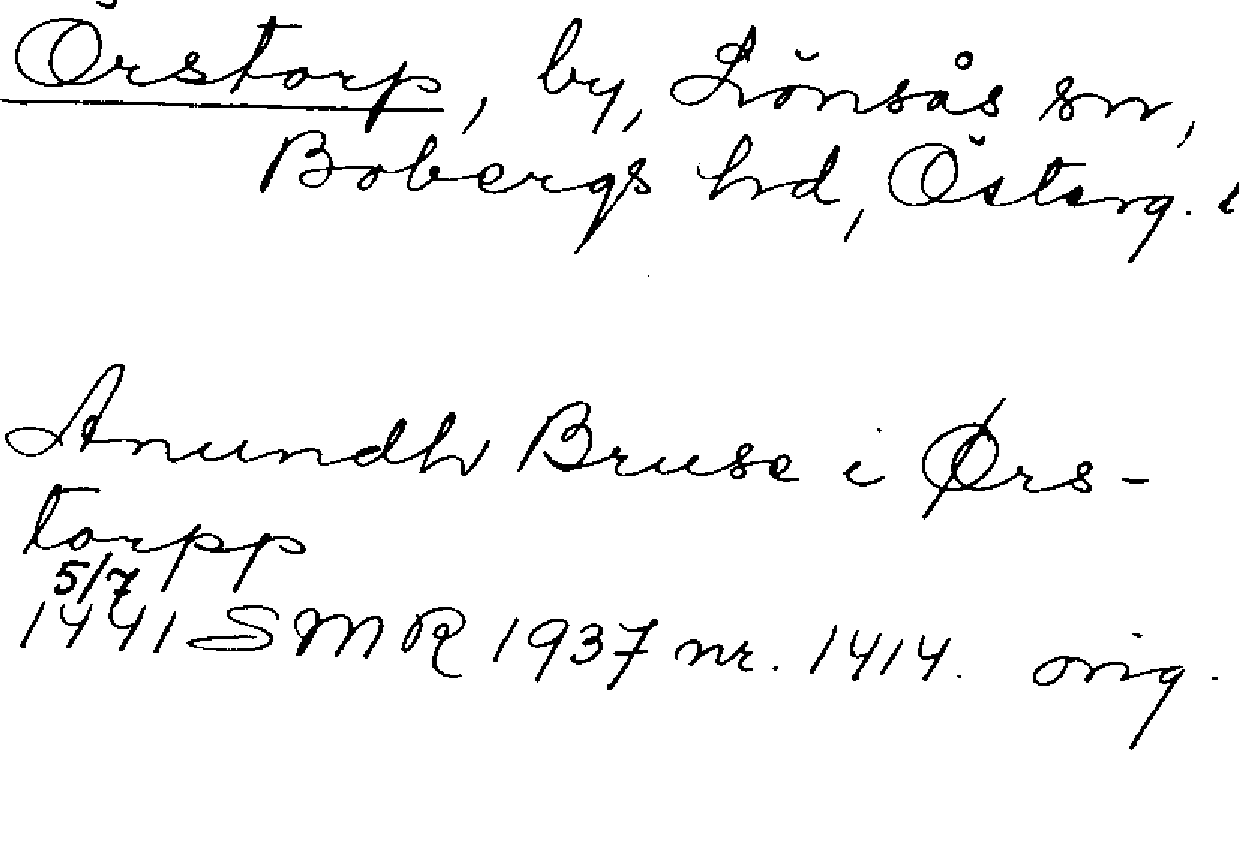 Örstorp, by, Lönsås sn,
Bobergs hd, Österg. l
Anundh Bruse i Ørs-
torpp
5/7
1441 SMR 1937 nr. 1414. orig.